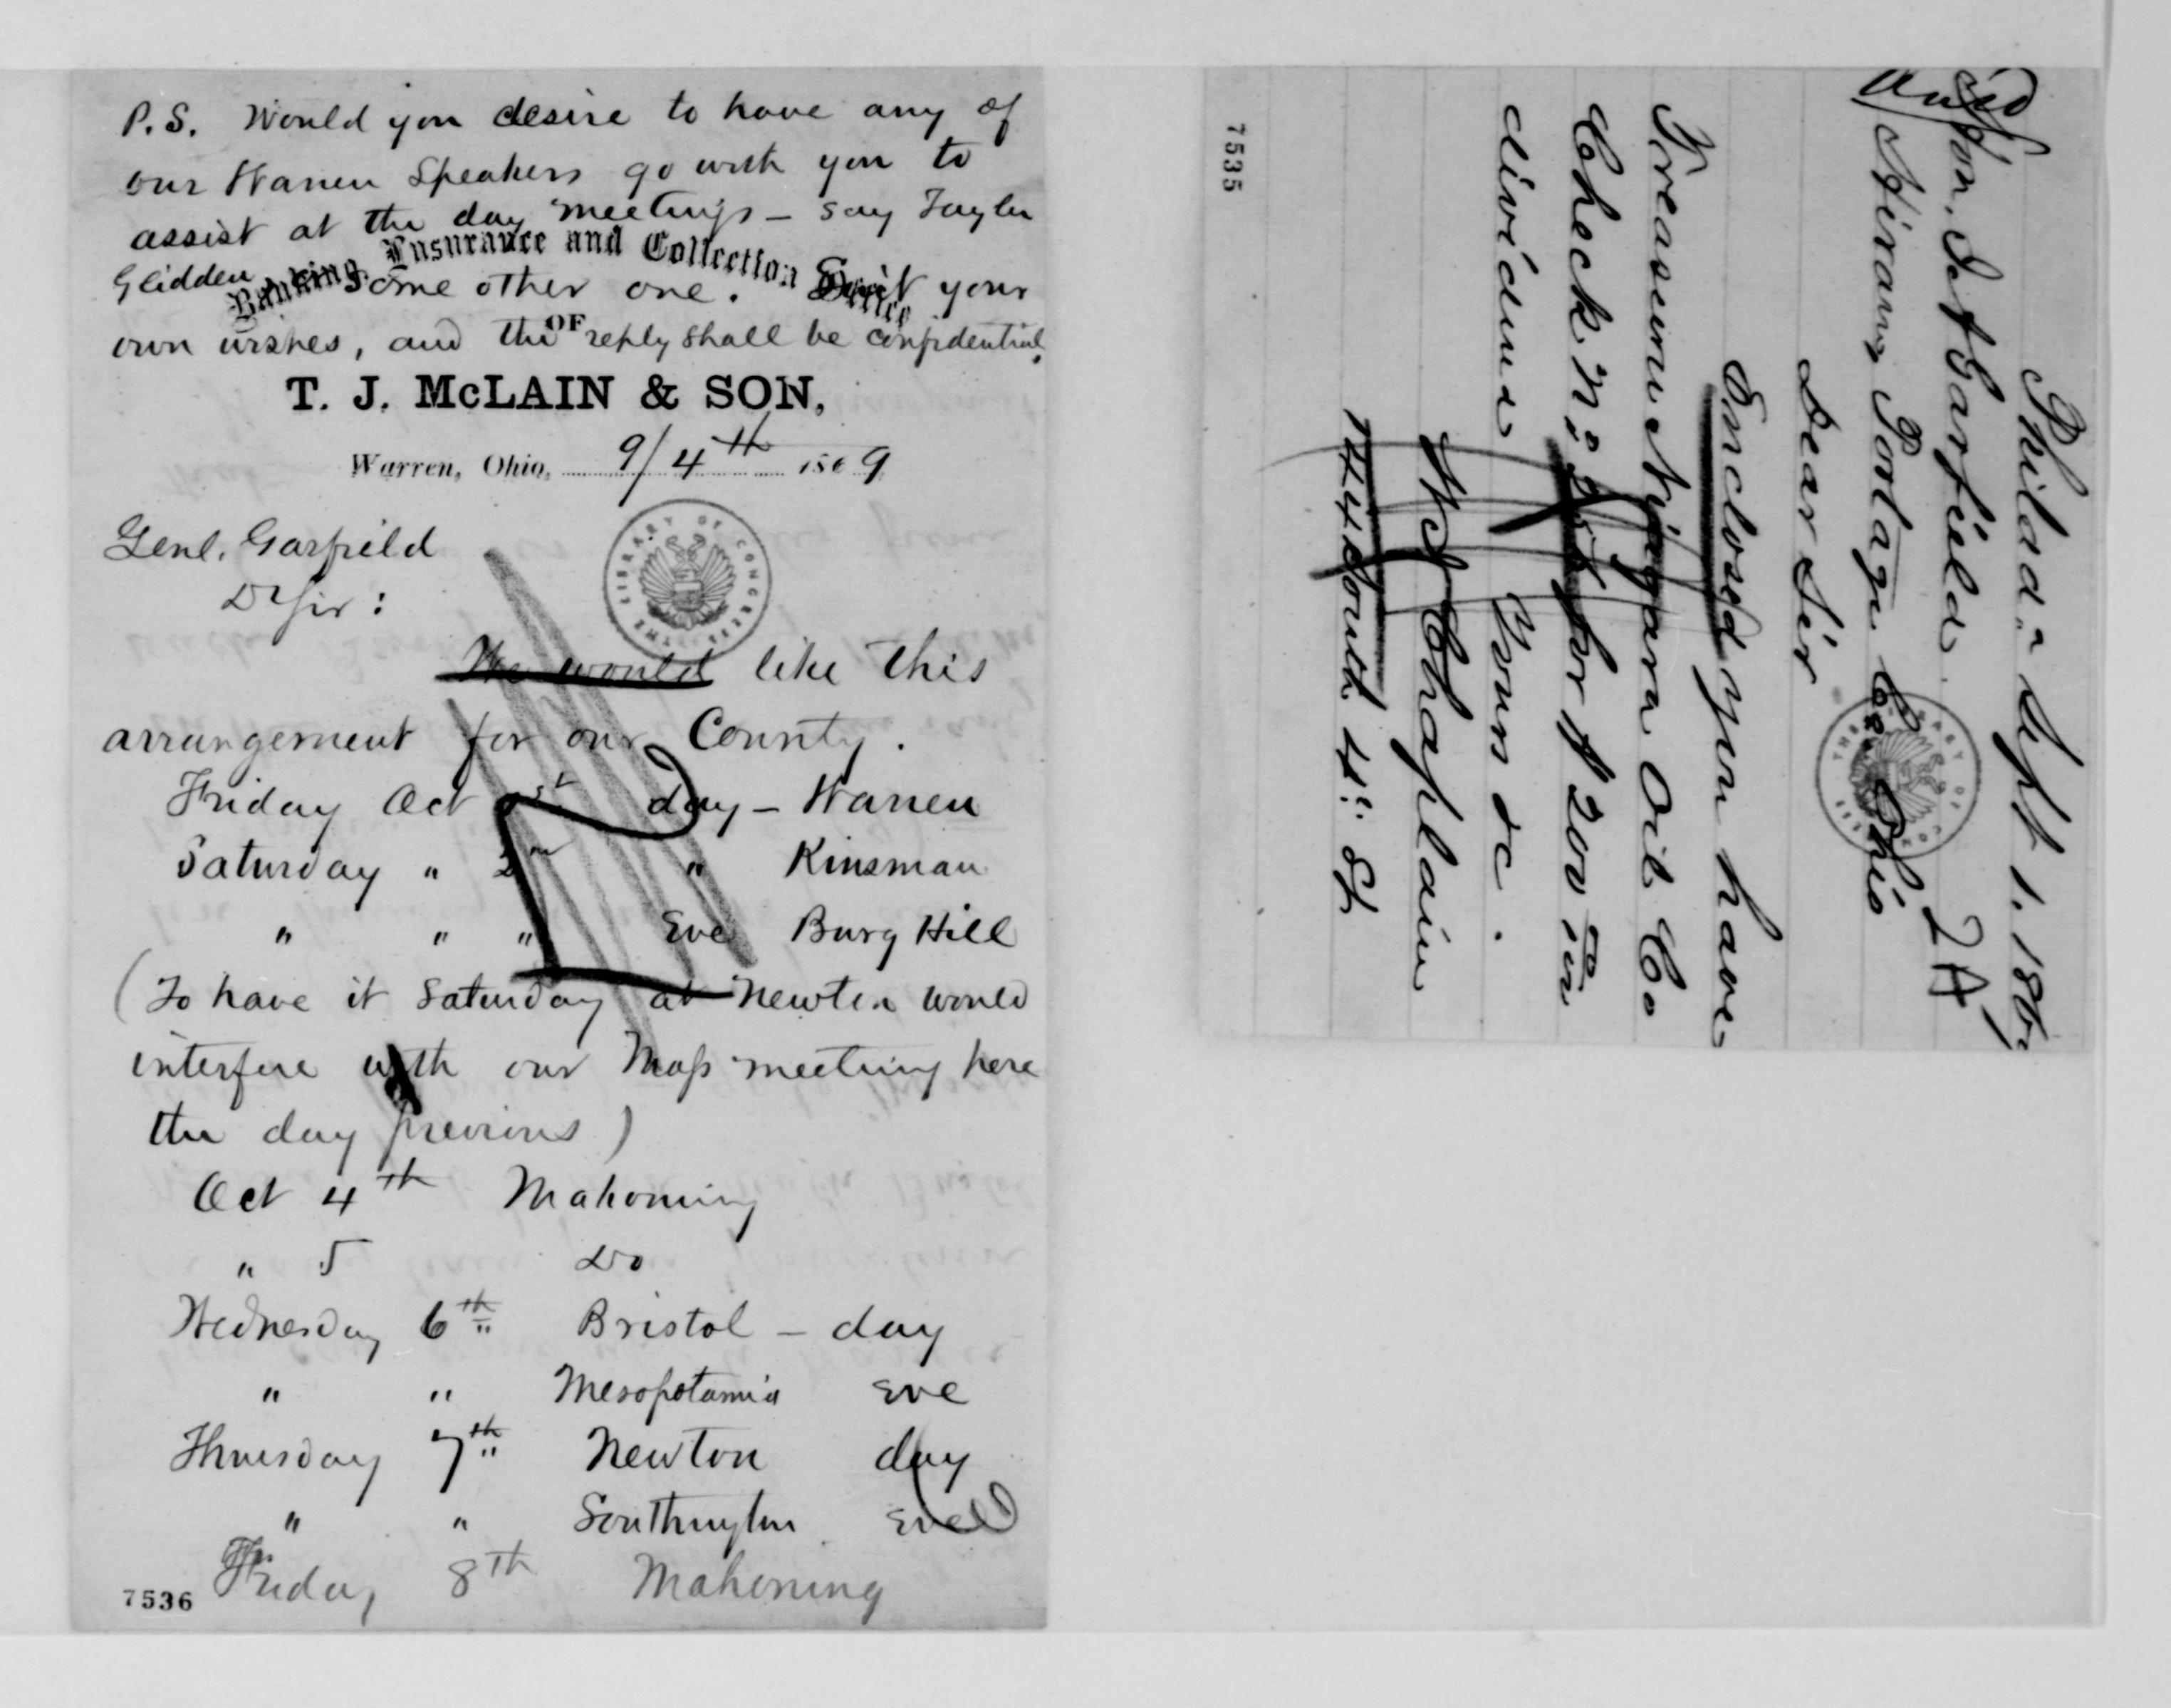 P.S. Would you desire to have any of
our Warren Speakers go with you to
assist at the day meetings — say Tayler
Glidden some other one. Suit your
own wishes, and the reply shall be confidential.
Banking, Insurance and Collection Office
OF
T. J. McLAIN & SON,
Warren, Ohio, 9/4th 1869
Genl. Garfield
Dr Sir :
We would like this
arrangement for our County.
Friday Oct 1st day — Warren
Saturday " 2nd " Kinsman
" " " Eve Burg Hill
(To have it Saturday at Newton would
interfere with our Mass meeting here
the day previous)
Oct 4th Mahoning
" 5 Do
Wednesday 6th " Bristol — day
" " Mesopotamia Eve
Thursday 7th " Newton day
" " Southington Eve
Friday 8th Mahoning
7536
THE LIBRARY OF CONGRESS
Ansd
Philada Sept 1. 1869
Hon. Jas A Garfield
Hiram Portage Co. Ohio
Dear Sir
Enclosed you have
Treasurer Niagara Oil Co
Check No for $200 for
dividend
Yours &c.
Chaplain
South 4th St
7535
THE LIBRARY OF CONGRESS